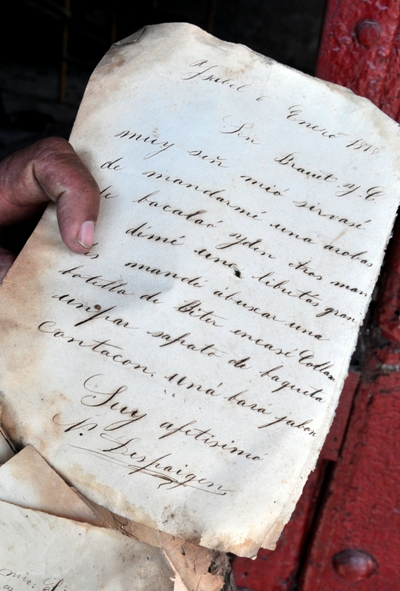 Ysabel 6 Enero 1878
Sen Brauet y C
muy señr mio sirvasé
de mandarmé una aroba
de bacalaó yden tros mas
dimé una libreta gran
mandé abuscar una
botella de Biter encasé Collan
un par sapato de baqueta
Contacon una bara jabon
Suy afetisimo
P. Despaigen